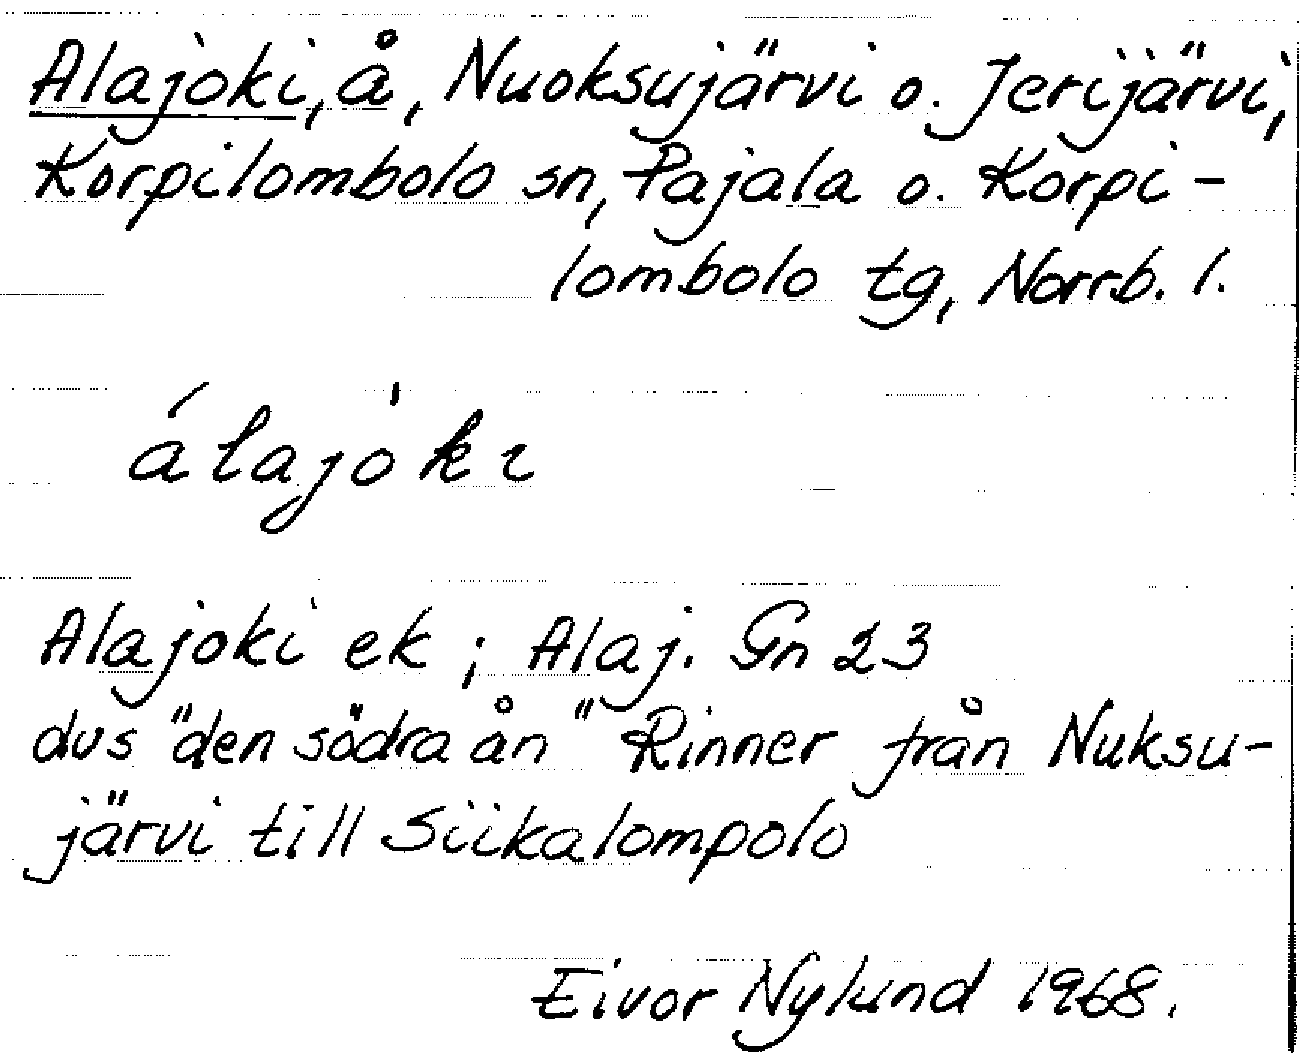 Alajoki, å, Nuoksujärvi o. Jerijärvi,
Korpilombolo sn, Pajala o. Korpi-
lombolo tg, Norrb. l.
álajòkɩ
Alajoki ek ; Alaj. Gn 23
dvs "den södra ån" Rinner från Nuksu-
järvi till Siikalompolo
Eivor Nylund 1968.